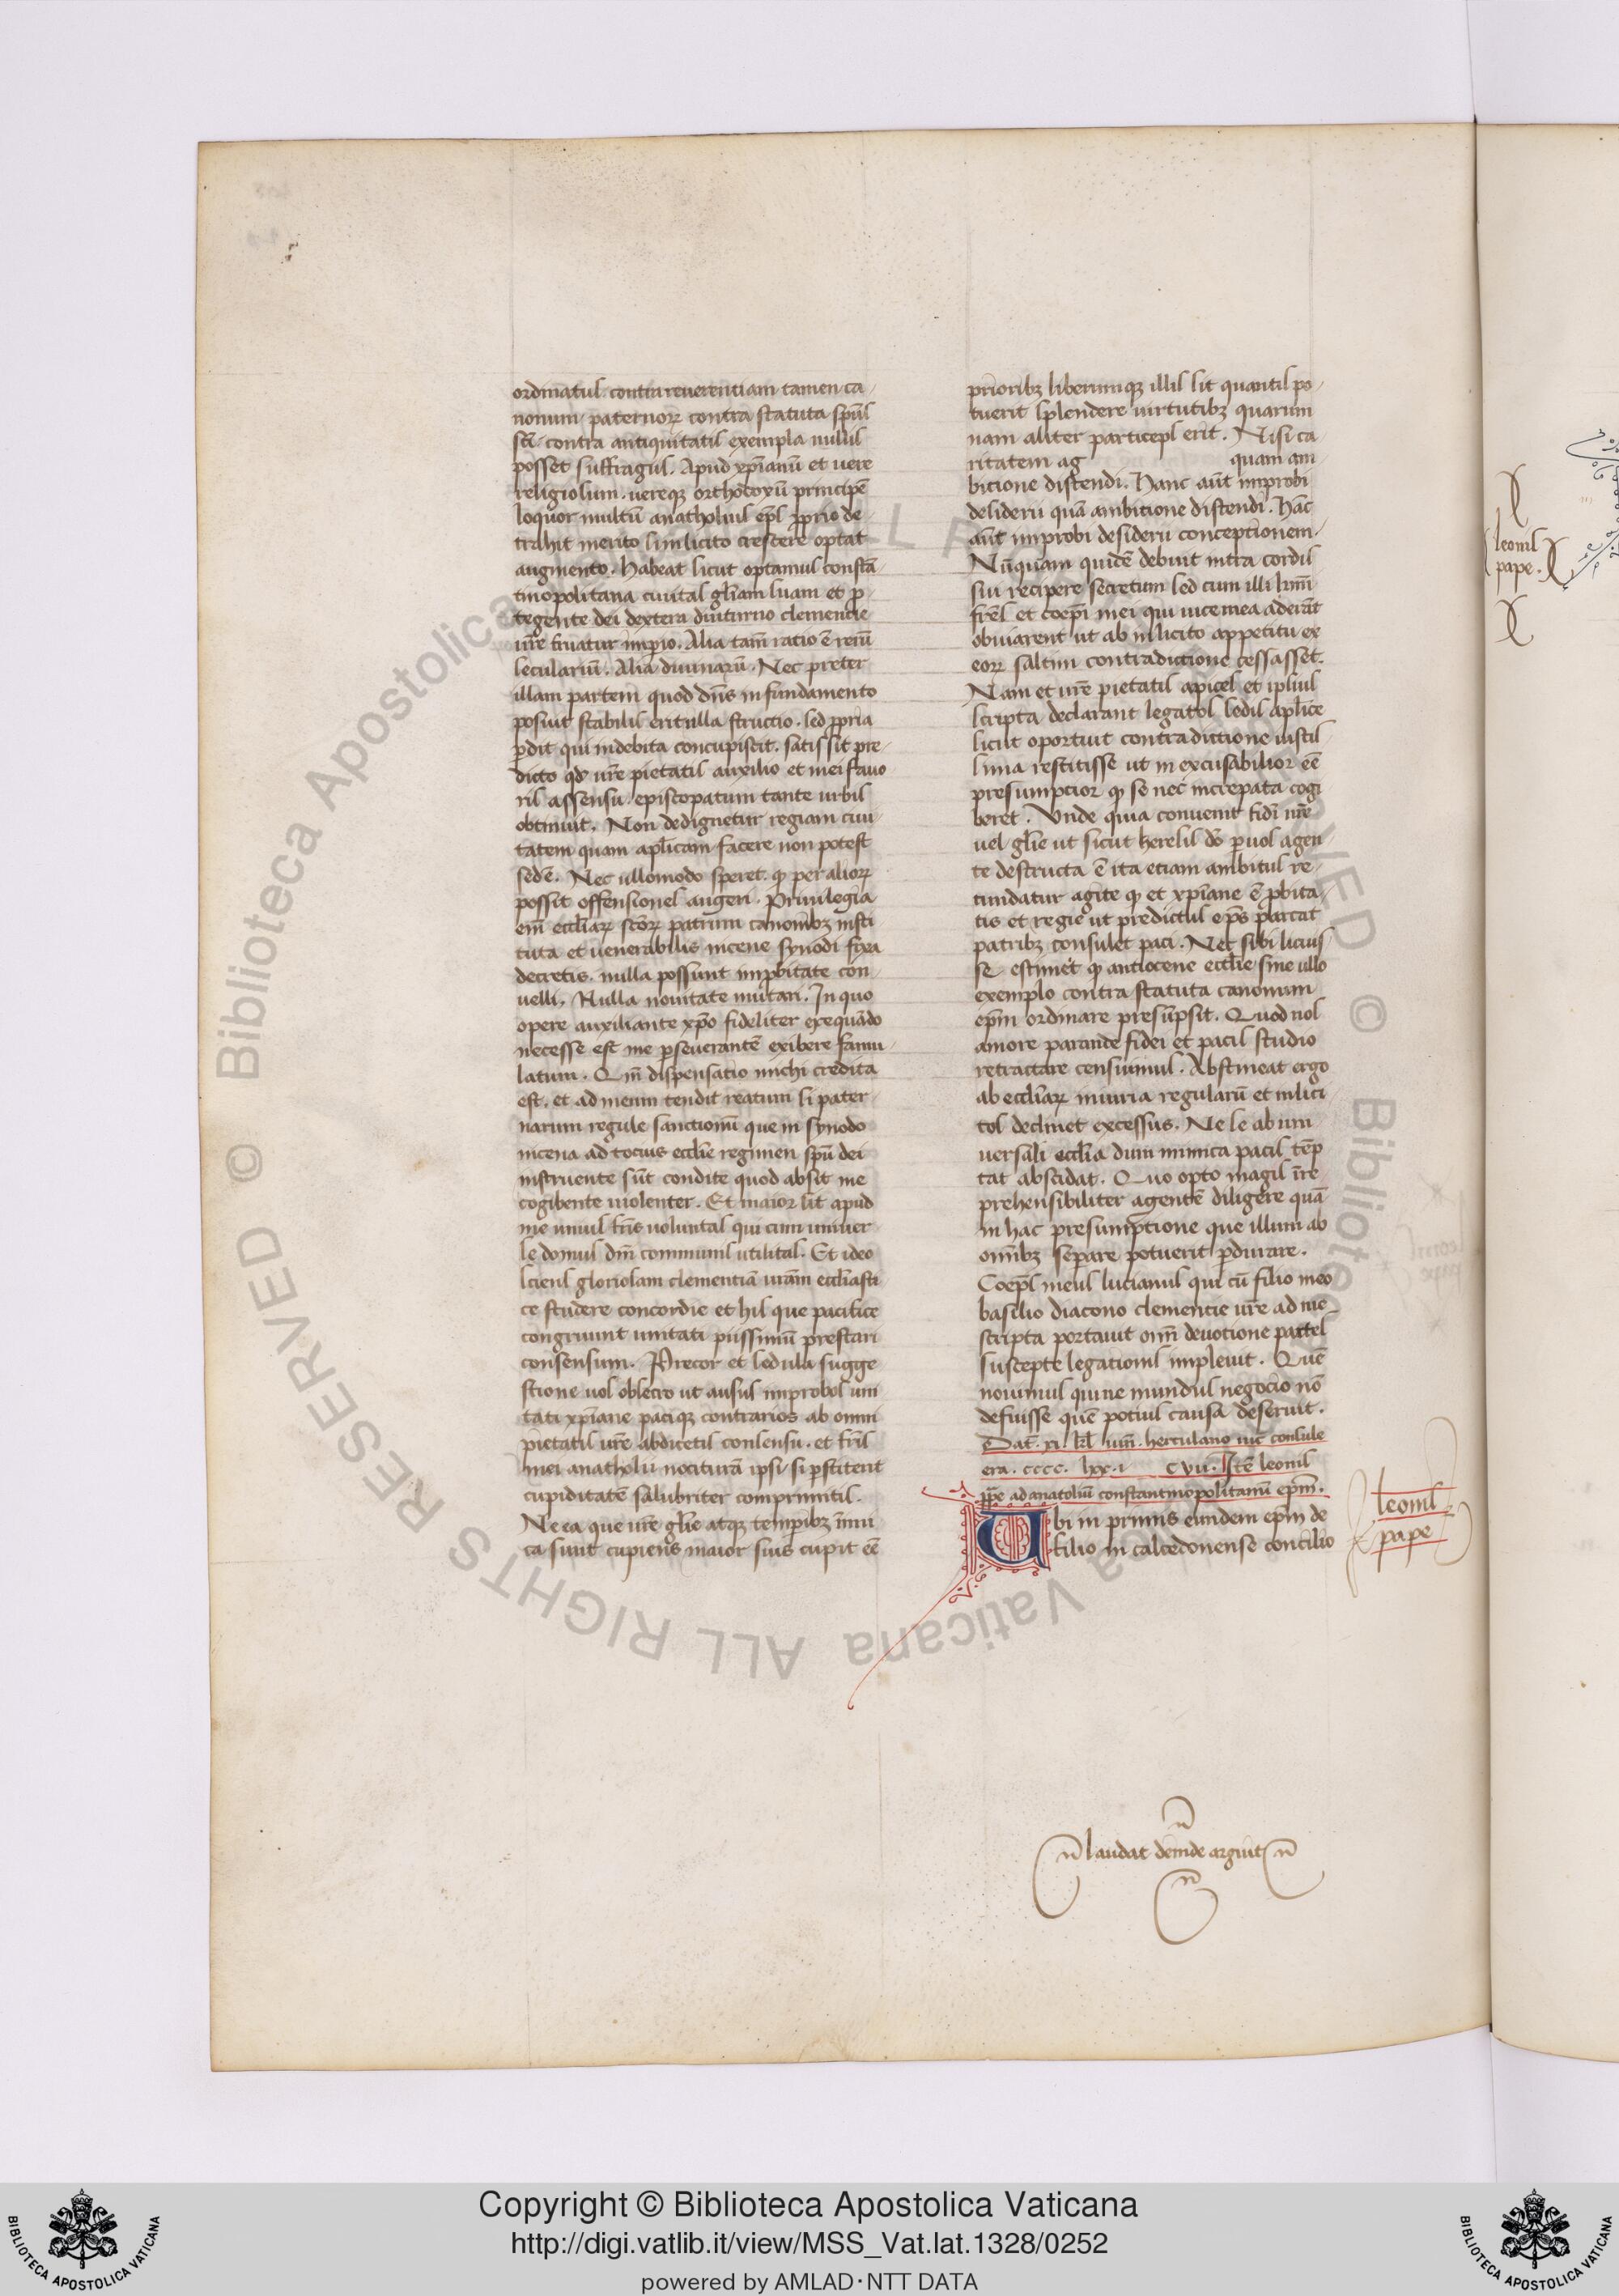 ordinatus. contra reuerentiam tamen ca-
nonum paternorꝝ contra statuta spūs
sc̄i. contra antiquitatis exempla nullis
posset suffragiis. Apud xp̄ianū et uere
religiosum. uereqꝫ orthodoxū principē
loquor multū anatholius ep̄s ꝓprio de-
trahit merito si inlicito crescere optat
augmento. Habeat sicut optamus constā-
tinopolitana ciuitas gl̄iam suam et ꝓ-
tegente dei dextera diuturno clementie
ur̄e fruatur imꝑio. Alia tam̄ ratio ē rerū
seculariū. Alia diuinarū. Nec preter
illam partem quod dn̄s in fundamento
posuit stabilis erit ulla structio. sed ꝓpria
ꝑdit qui indebita concupiscit. satis sit pre-
dicto qd̄ ur̄e pietatis auxilio et mei fauo
ris assensu. episcopatum tante urbis
obtinuit. Non dedignetur regiam ciui-
tatem quam apl̄icam facere non potest
sedē. Nec ullomodo speret. qꝫ per aliorꝝ
possit offensiones augeri. Priuilegia
em̄ eccl̄iarꝝ sc̄orꝝ patrum canonibꝫ insti
tuta et uenerabilis nicene synodi fixa
decretis. nulla possunt imꝓbitate con-
uelli. Nulla nouitate mutari. In quo
opere auxiliante xp̄o fideliter exequādo
necesse est me ꝑseuerantē exibere famu-
latum. Qm̄ dispensatio michi credita
est. et ad meum tendit reatum si pater-
narum regule sanctionū que in synodo
nicena ad tocius eccl̄ie regimen spū dei
instruente sūt condite quod absit me
cogibente uiolenter. Et maior sit apud
me unius fr̄is uoluntas qui cum uniuer
se domus dn̄i communis utilitas. Et ideo
sciens gloriosam clementiā ur̄am eccl̄iasti
ce studere concordie et his que pacifice
congruunt unitati piissimū prestari
consensum. Precor et sedula sugge
stione uos obsecro ut ausus improbos uni
tati xp̄iane paciqꝫ contrarios ab omni
pietatis ur̄e abdicetis consensu. et fr̄is
mei anatholii nociturā ipsi si ꝑstiterit
cupiditatē salubriter comprimitis.
Ne ea que ur̄e gl̄ie atqꝫ temꝑibꝫ īimi
ca sunt cupiens maior suis cupit eē
prioribꝫ liberumqꝫ illis sit quantis po-
tuerit splendere uirtutibꝫ quarum
nam aliter particeps erit. Nisi ca
ritatem ag quam am
bicione distendi. Hanc aūt improbi
desiderii quā ambitione distendi. Hāc
aūt improbi desiderii conceptionem.
Nūquam quidē debuit intra cordis
sui recipere secretum sed cum illi
fr̄es et coep̄i mei qui uice mea aderāt
obuiarent ut ab inlicito appetitu ex
eorꝝ saltim contradictione cessasset.
Nam et ur̄e pietatis apices et ipsius
scripta declarant legatos sedis apl̄ice
sicut oportuit contradictione iustis
sima restitisse ut inexcusabilior eē
presumptior qꝫ se nec increpata cogi
beret. Unde quia conuenit fidi nr̄e
uel gl̄ie ut sicut heresis dō ꝑ uos agen
te destructa ē ita etiam ambitus re-
tundatur agite qꝫ et xp̄iane ē ꝓbita-
tis et regie ut predictus ep̄s parcat
patribꝫ consulet paci. Nec sibi licius-
se estimet qꝫ antiocene eccl̄ie sine ullo
exemplo contra statuta canonum
ep̄m ordinare presūpsit. Quod nos
amore parande fidei et pacis studio
retractare censuimus. Abstineat ergo
ab eccl̄iarꝝ iniuria regularū et inlici
tos declinet excessus. Ne se ab uni
uersali eccl̄ia dum inimica pacis tēp
tat abscidat. Quo opto magis īre
prehensibiliter agentē diligere quā
in hac presumptione que illum ab
omibꝫ separare potuerit ꝑdurare.
Coep̄s meus lucianus qui cū filio meo
basilio diacono clementie ur̄e ad me
scripta portauit om̄i deuotione partes
suscepte legationis impleuit. Quē
nouimus qui ne mundus negocio nō
defuisse quē potius causa deseruit.
Dat̄. xi. kl̄. iun̄. herculano uic̄ consule
era. cccc. lxx.i CVII. Itē leonis
p̄pe ad anatoliū constantinopolitanū ep̄m.
Ubi in primis eundem ep̄m de
filio in calcedonense concilio
leonis
pape
n̄ laudat deinde arguit n̄
leonis
pape.
Copyright © Biblioteca Apostolica Vaticana
http://digi.vatlib.it/view/MSS_Vat.lat.1328/0252
powered by AMLAD·NTT DATA
BIBLIOTECA APOSTOLICA VATICANA
BIBLIOTECA APOSTOLICA VATICANA
© Biblioteca Apostolica Vaticana ALL RIGHTS RESERVED